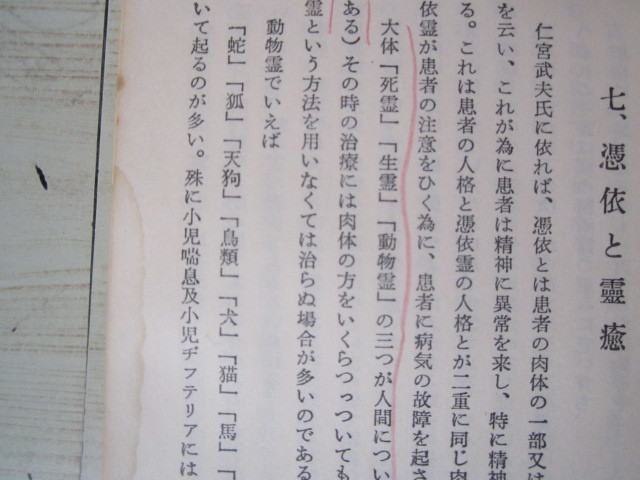 七、憑依と靈癒
仁宮武夫氏に依れば、憑依とは患者の肉体の一部又は
を云い、これが為に患者は精神に異常を来し、特に精神
る。これは患者の人格と憑依霊の人格とが二重に同じ肉
依霊が患者の注意をひく為に、患者に病気の故障を起さ
大体「死霊」「生霊」「動物霊」の三つが人間につい
ある）その時の治療には肉体の方をいくらつっついても
霊という方法を用いなくては治らぬ場合が多いのである
動物霊でいえば
「蛇」「狐」「天狗」「鳥類」「犬」「猫」「馬」「
いて起るのが多い。殊に小児喘息及小児ヂフテリアには